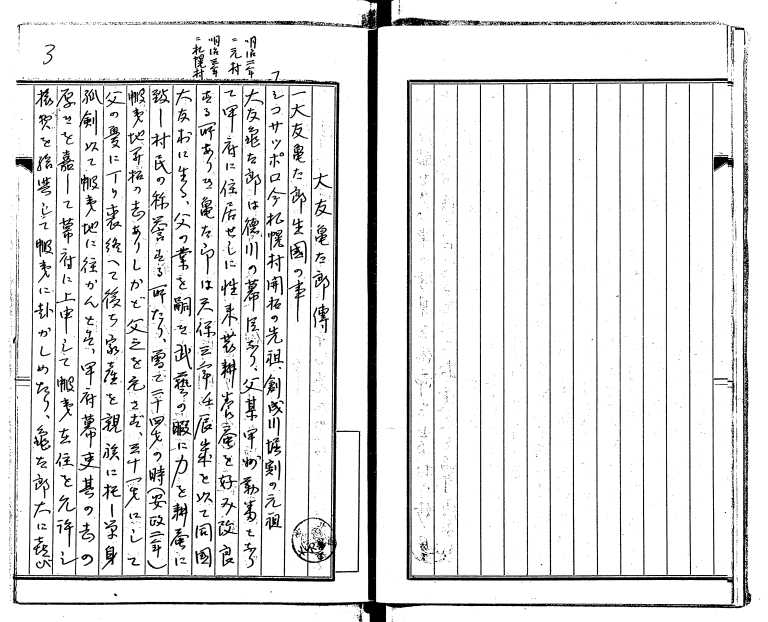 大友亀太郎傳
一大友亀太郎生國の事
フシコサッポロ今札幌村開拓の先祖、創成川堀割の元祖
大友亀太郎は徳川の幕臣なり、父某甲州勤番となり
て甲府に住居せしに性来農耕養蚕を好み改良
する所ありき亀太郎は天保三年壬辰歳を以て同国
大友村に生る、父の業を嗣き武藝の暇に力を耕蚕に
致し村民の称誉する所たり、曽て二十四才の時(安政二年)
蝦夷地開拓の志ありしかど父之を允さず、三十一才にして
父の憂に丁り喪終へて後ち家産を親族に托し単身
孤剣以て蝦夷地に往かんとせ、甲府幕吏其の志の
厚きを嘉して幕府に上申して蝦夷在住を允許し
様費を給與して蝦夷に赴かしめたり、亀太郎大に喜び
明治二年
ニ元村
明治三年
ニ札幌村
3